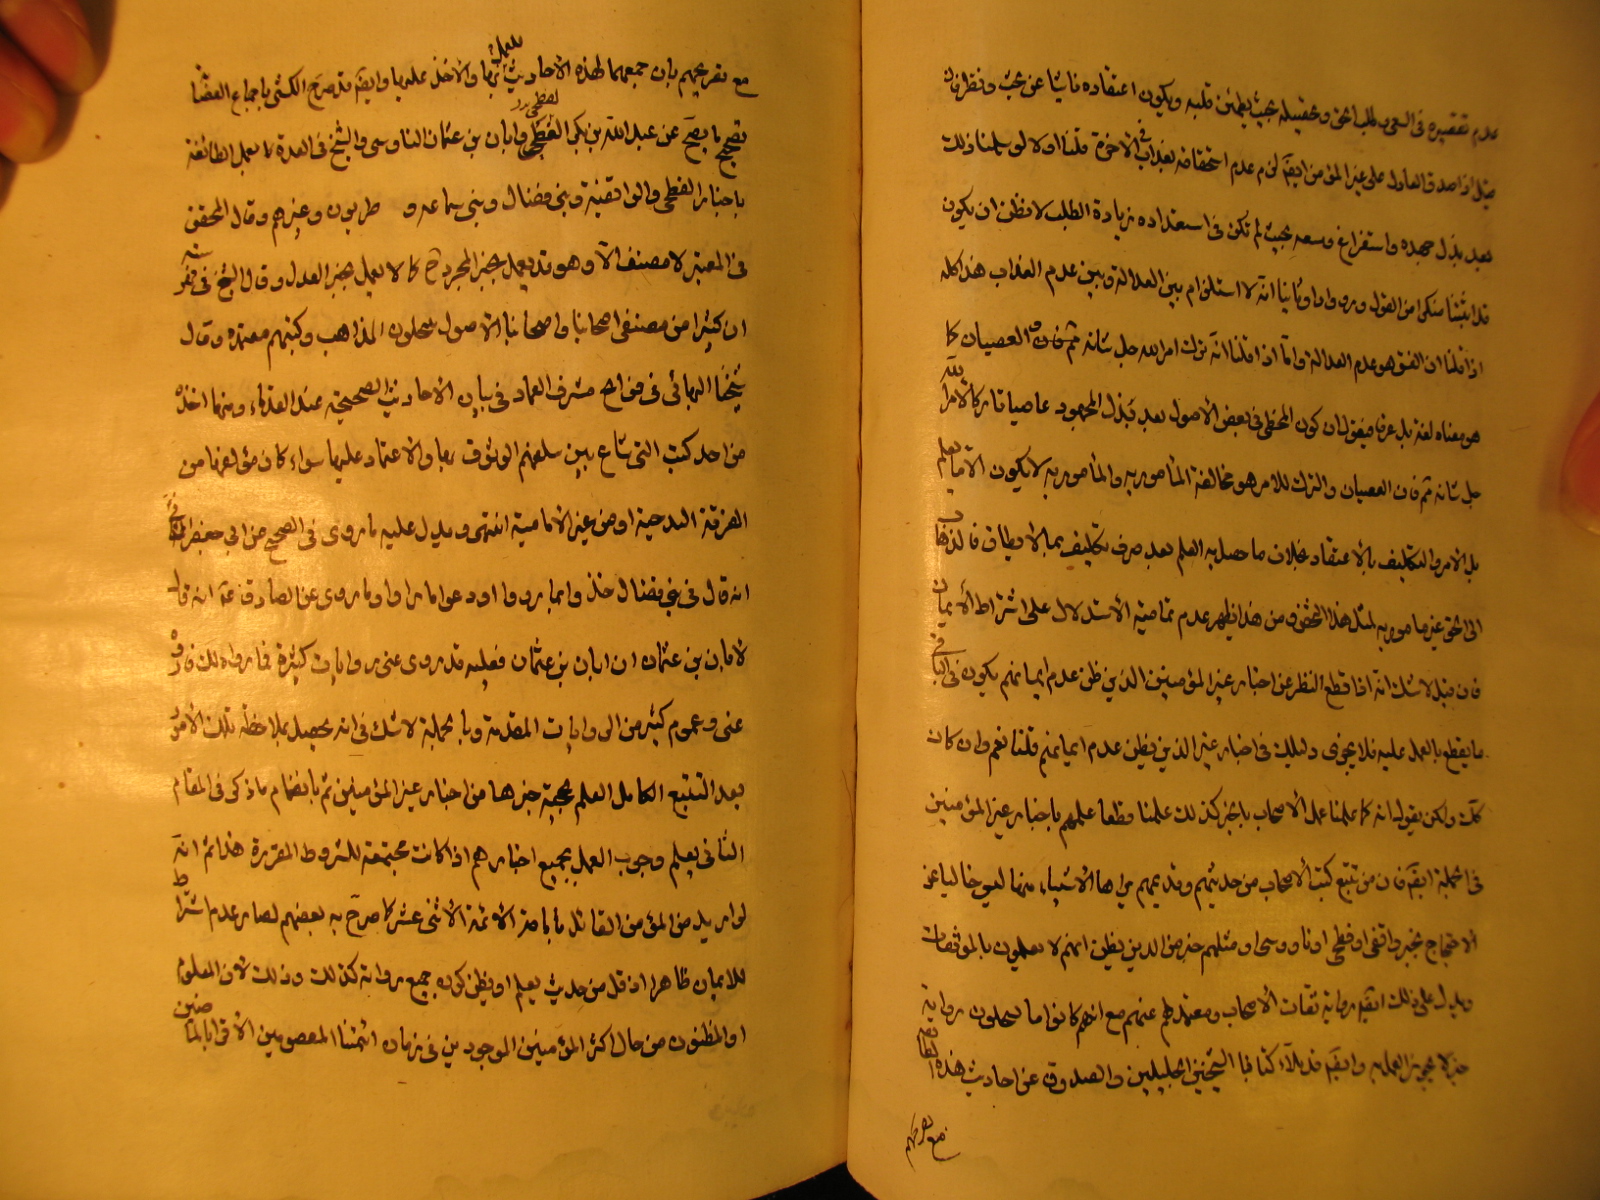 عدم تقصيره فى السعى للمباحث وتحصيله بحيث يطمئن قلبه ويكون اعتقاده ناشيا عن بحث ونظر فان
قيل اذا صدق العادل على غير المؤمن ايضا لزم عدم استحقاقه بعذاب فى الآخرة قلنا اولا لو سلمنا ذلك
بعد بذل جهده واستفراغ وسعه بحيث لم تكن فى استعداده زيادة الطلب لا نظن ان يكون
قد اثبتنا منكرا من القول وزورا وثانيا انه لا استلزام بين العدالة وبين عدم العذاب هذا كله
اذا قلنا ان الفسق هو عدم العدالة واما اذا قلنا انه ترك امر الله جل شانه ثم فان العصيان كما
هو معناه لغة بل عرفا فيقول ان كون المخطى فى بعض الأصول بعد بذل المجهود عاصيا تاركا لامر الله
جل شانه ثم فان العصيان والترك للامر هو مخالفة المأمور به والمأمور به لا يكون الا ما يعلم
بل الامر والتكليف بالاعتقاد بخلاف ما حصل به العلم بعد صرف تكليف بما لا يطاق فالذهاب
الى الحق غير مأمور به لمثل هذا الشخص ومن هذا يظهر عدم تمامية الاستدلال على اشتراط الأيمان
فان قيل لا شك انه اذا قطع النظر عن اخبار غير المؤمنين الذين ظن عدم ايمانهم يكون فى الباقى
ما يقطع بالعمل عليه فلا يجرى دليلك فى اخبار غير الذين يظن عدم ايمانهم قلنا نعم وان كان
كك ولكن يقول انه كما علمنا عمل الأصحاب باخبر كذلك علمنا قطعا عملهم باخبار غير المؤمنين
فى الجملة ايضا فان من تتبع كتب الأصحاب من حديثهم وقديمهم يراها الأشياء منها ليس خاليا عن
الاحتجاج بخبر واقفى او فطحى او ناووسى او مثلهم حتى من الذين يظن انهم لا يعملون بالموثقات
ويدل على ذلك ايضا رواية ثقات الأصحاب ومعتمدهم عنهم مع انهم كانوا ما يحملون رواية
خبر لا يجوز العمل به وايضا قد ملآء كتابا الشيخين الجليلين والصدوق عن احاديث هذه الطائفة
مع تصريحهم
مع تصريحهم بان جمعهما لهذه الأحاديث للعمل بها والأخذ عليها وايضا قد صرح الكشى باجماع العصابة
تصحيح ما يصح عن عبد الله بن بكير الفطحى وابان بن عثمان الناوسى والشيخ فى العدة بعمل الطائفة
باخبار الفطحى والواقفية وبنى فضال وبنى سماعه و طريون وغيرهم وقال المحقق
فى المعتبر لا مصنف الا وهو قد يعمل بخبر المجروح كما لا يعمل بخبر العدل وقال الشيخ فى فهرسته
ان كثيرا من مصنفى اصحابنا واصحابنا الأصول ينتحلون المذاهب وكتبهم معتمده وقال
شيخنا البهائى فى فواتح مشرق العماد فى بيان الأحاديث الصحيحة عند القدماء ومنها اخذه
من احد كتب التى شاع بين سلفهم الوثوق بها والأعتماد عليها سواء كان مؤلفها من
الفرقة المحقة او من غير الأمامية انتهى ويدل عليه ما روى فى الصحيح عن ابى جعفر الثانى
انه قال فى بنى فضال خذوا بما رووا ودعوا ما راوا وما روى عن الصادق ع انه قال
لابان بن عثمان ان ابان بن عثمان فعليه قد روى عنى روايات كثيرة فما رواه لك فارو
عنى وعموم كثير من الروايات المتقدمة وبالجملة لا شك فى انه يحصل بملاحظة تلك الأمور
بعد التتبع الكامل العلم بحجية خبرها من اخبار غير المؤمنين ثم بانضمام ما ذكر فى المقام
الثانى يعلم وجوب العمل بجميع اخبارهم اذا كانت مجتمعة للشروط المقررة هذا ثم انه
لو اريد من المؤمن القائل بامامة الأئمة الأثنى عشر كما صرح به بعضهم لصار عدم اشتراط
للايمان ظاهرا اذ قل من حديث يعلم او يظن كون جميع رواته كذلك وذلك لأن المعلوم
او المظنون من حال اكثر المؤمنين الموجودين فى زمان ائمتنا المعصومين الأقرار بالماضين